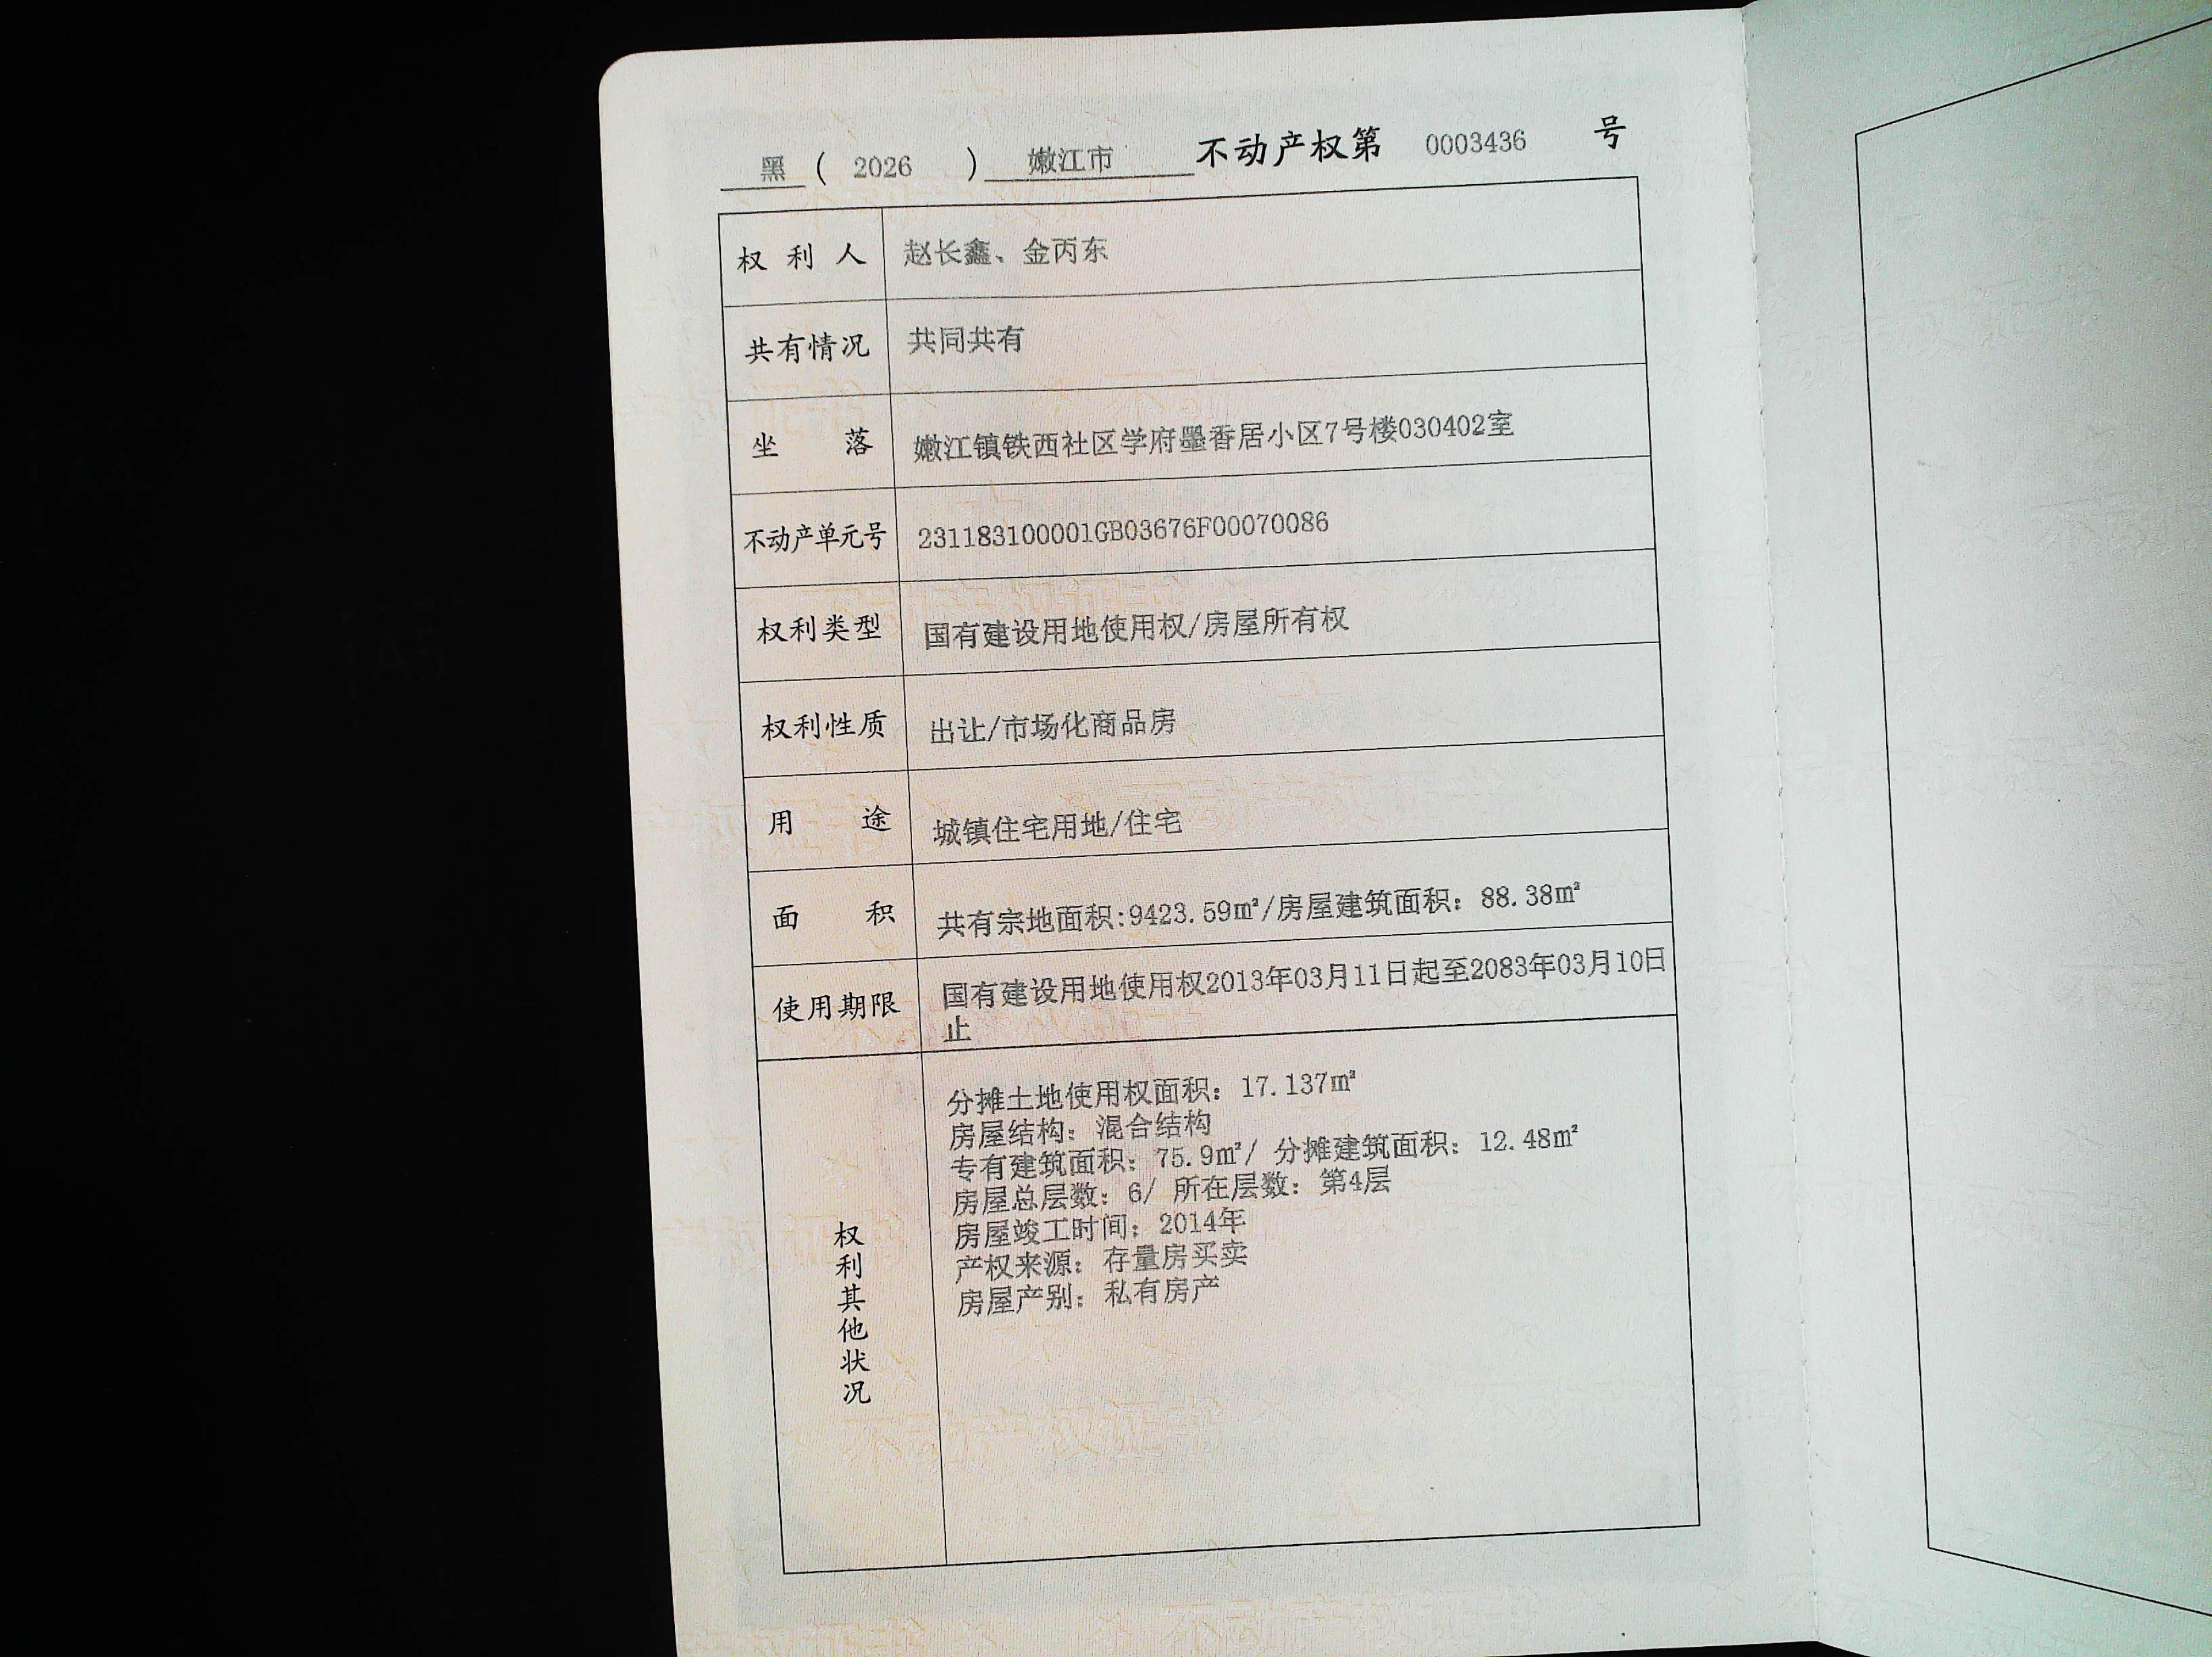 黑（2026）嫩江市不动产权第 0003436 号
权利人 赵长鑫、金丙东
共有情况 共同共有
坐落 嫩江镇铁西社区学府墨香居小区7号楼030402室
不动产单元号 231183100001GB03676F00070086
权利类型 国有建设用地使用权/房屋所有权
权利性质 出让/市场化商品房
用途 城镇住宅用地/住宅
面积 共有宗地面积:9423.59㎡/房屋建筑面积：88.38㎡
使用期限 国有建设用地使用权2013年03月11日起至2083年03月10日
止
权利其他状况
分摊土地使用权面积：17.137㎡
房屋结构：混合结构
专有建筑面积：75.9㎡/ 分摊建筑面积：12.48㎡
房屋总层数：6/ 所在层数：第4层
房屋竣工时间：2014年
产权来源：存量房买卖
房屋产别：私有房产